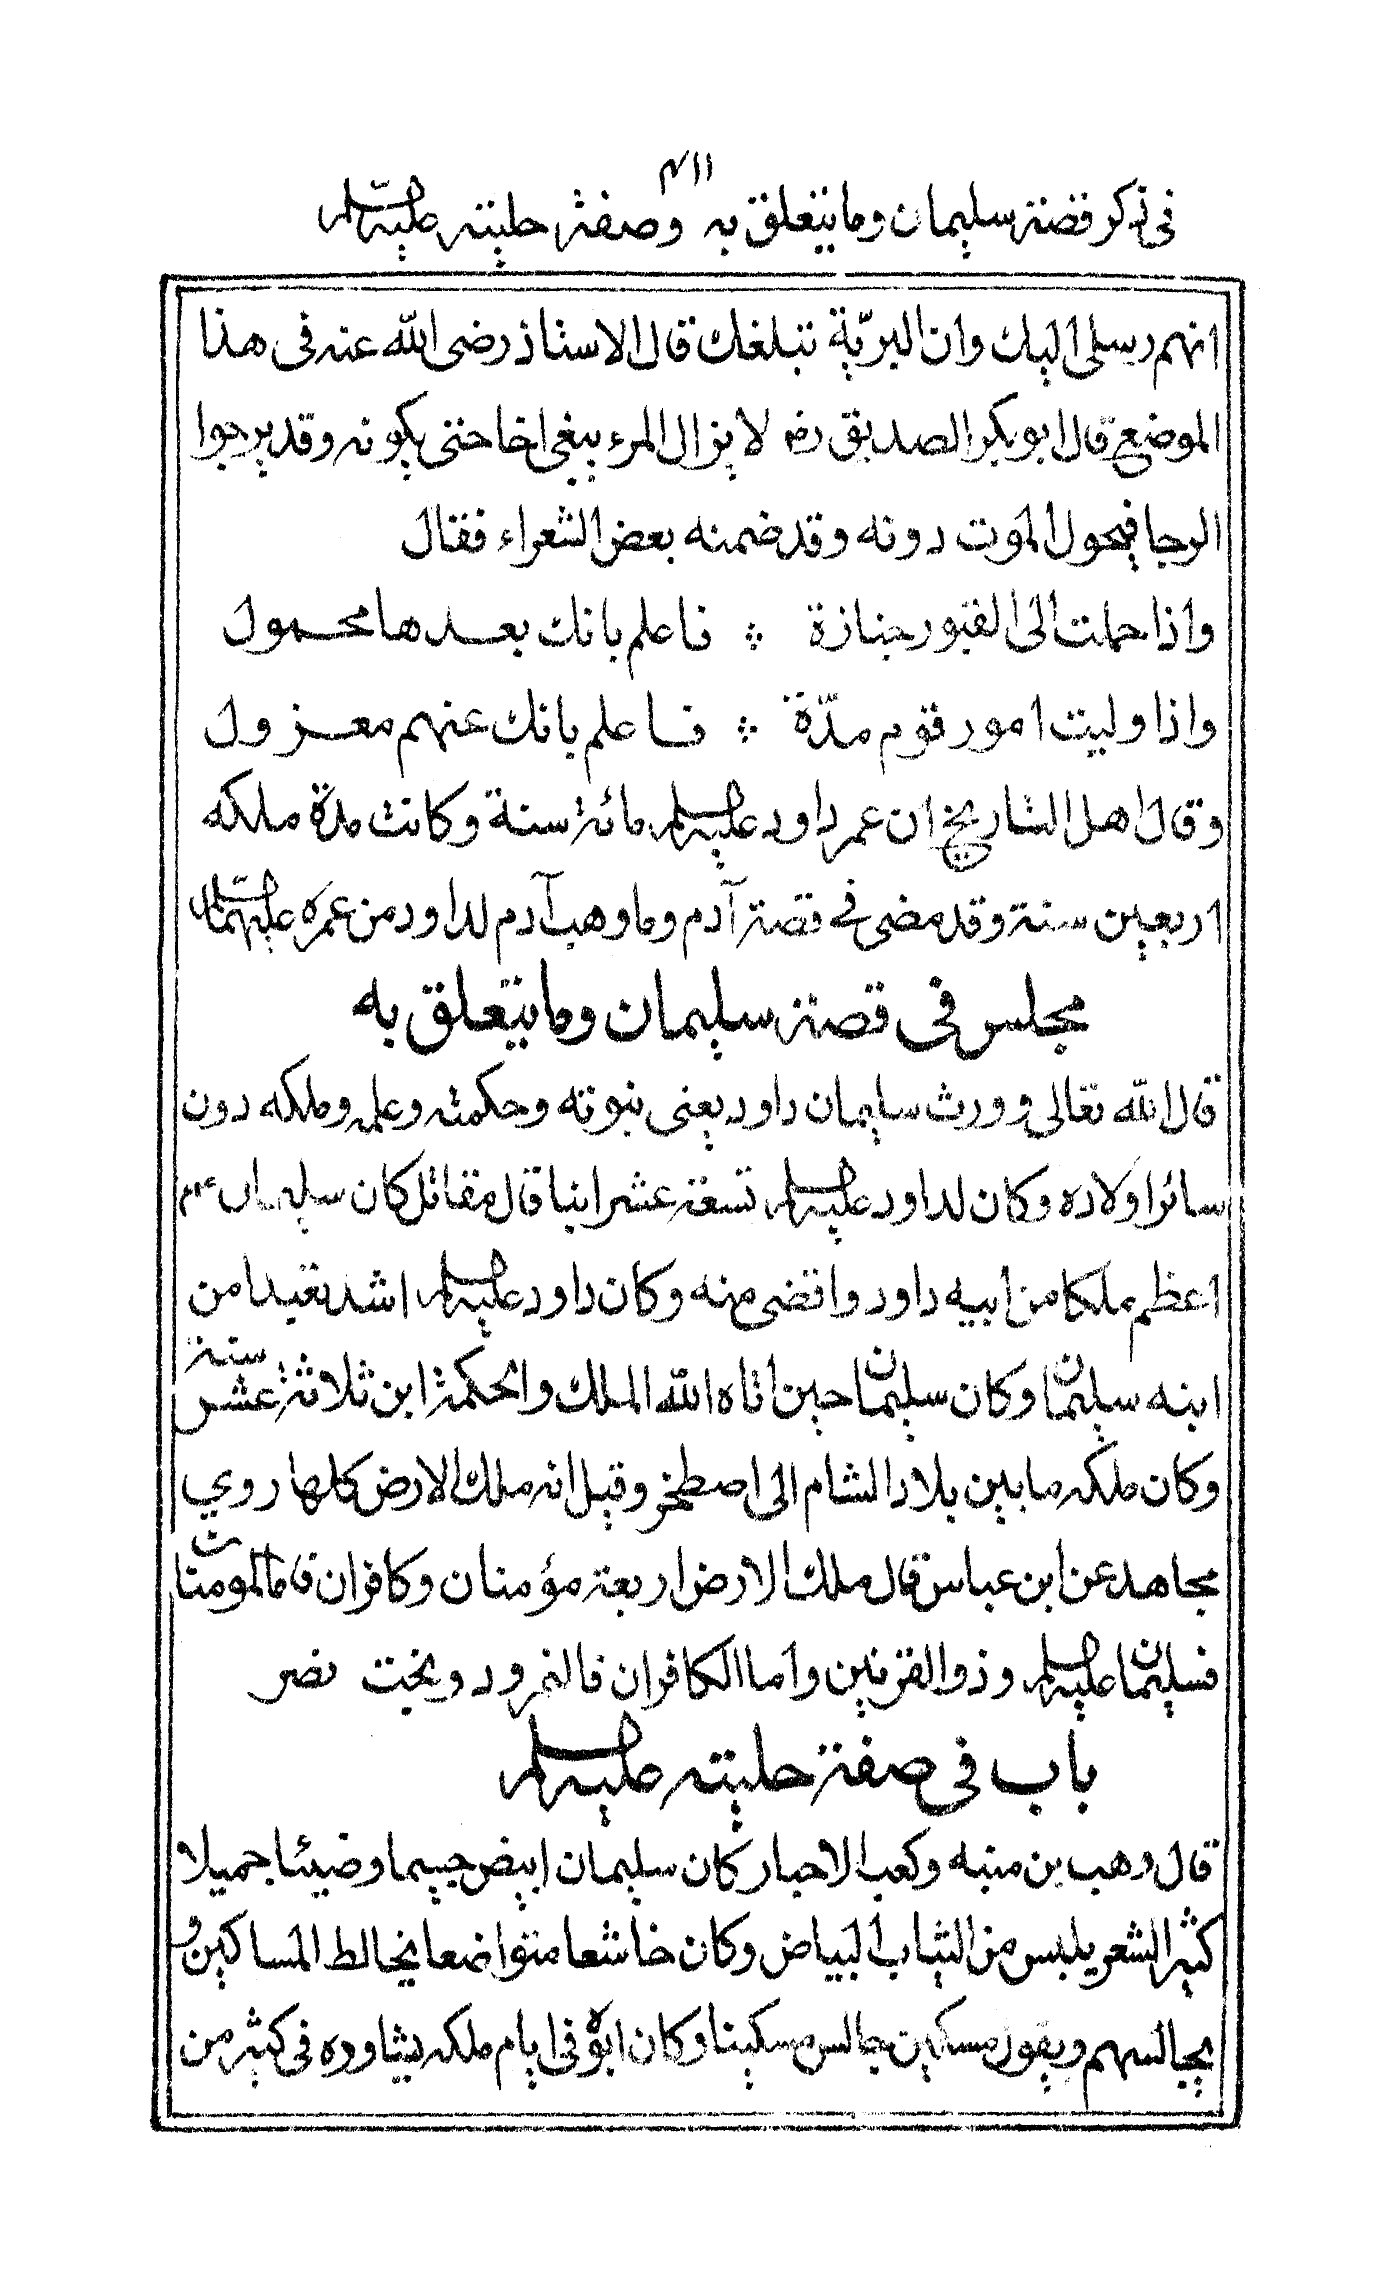 ٤١١
فى ذكر قصة سليمان وما يتعلق به وصفة حليته عليه السلام
انهم رسلى اليك وان البريّة تبلغك قال الاستاذ رضى الله عنه فى هذا
الموضع قال ابو بكر الصديق رض لا يزال المرء يبغى اخا حتى يكونه وقد يرجوا
الرجا فيحول الموت دونه وقد ضمنه بعض الشعراء فقال
واذا حملت الى القبور جنازة ؞ فاعلم بانك بعدها محمول
واذا وليت امور قوم مدّة ؞ فاعلم بانك عنهم معزول
وقال اهل التاريخ ان عمر داود عليه السلم مائة سنة وكانت مدة ملكه
اربعين سنة وقد مضى فى قصة آدم وما وهب آدم لداود من عمره عليهما السلام
مجلس فى قصة سليمان وما يتعلق به
قال الله تعالى وورث سليمان داود يعنى نبوته وحكمته وعلمه وملكه دون
سائر اولاده وكان لداود عليه السلم تسعة عشر ابنا قال مقاتل كان سليمان عم
اعظم ملكا من ابيه داود واقضى منه وكان داود عليه السلم اشد تعبدا من
ابنه سليمان وكان سليمان حين اتاه الله الملك والحكمة ابن ثلاثة عشر سنة
وكان ملكه ما بين بلاد الشام الى اصطخر وقيل انه ملك الارض كلها روي
مجاهد عن ابن عباس قال ملك الارض اربعة مؤمنان وكافران فاما المومنان
فسليمان عليه السلم وذو القرنين واما الكافران فالنمرود وبخت نصر
باب فى صفة حليته عليه السلم
قال وهب بن منبه وكعب الاحبار كان سليمان ابيض جسيما وضيئا جميلا
كثير الشعر يلبس من الثياب البياض وكان خاشعا متواضعا يخالط المساكين و
يجالسهم ويقول مسكين جالس مسكينا وكان ابوه فى ايام ملكه يشاوره فى كثير من